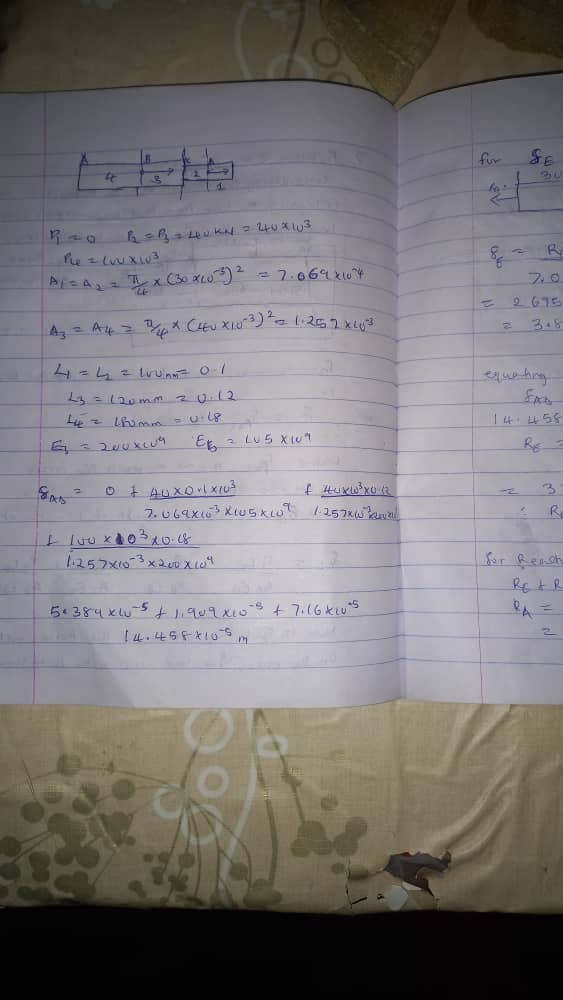 A B c D
4 3 2 1
P₁ = 0 P₂ = P₃ = 40 kN = 40 × 10³
P₄ = 100 × 10³
A₁ = A₂ = π/4 × (30 × 10⁻³)² = 7.069 × 10⁻⁴
A₃ = A₄ = π/4 × (40 × 10⁻³)² = 1.257 × 10⁻³
L₁ = L₂ = 100mm = 0.1
L₃ = 120mm = 0.12
L₄ = 180mm = 0.18
= 200 × 10⁹ = 105 × 10⁹
= 0 + 40 × 0.1 × 10³ / 7.069 × 10⁻³ × 105 × 10⁹ + 40 × 10³ × 0.12 / 1.257 × 10⁻³
+ 100 × 10³ × 0.18 / 1.257 × 10⁻³ × 200 × 10⁹
5.389 × 10⁻⁵ + 1.909 × 10⁻⁵ + 7.16 × 10⁻⁵
14.458 × 10⁻⁵ m
for δE
30
δE =
7.0
= 2695
= 3.8
equating
14.458
RE =
= 3
for React
RE + R
RA =
=